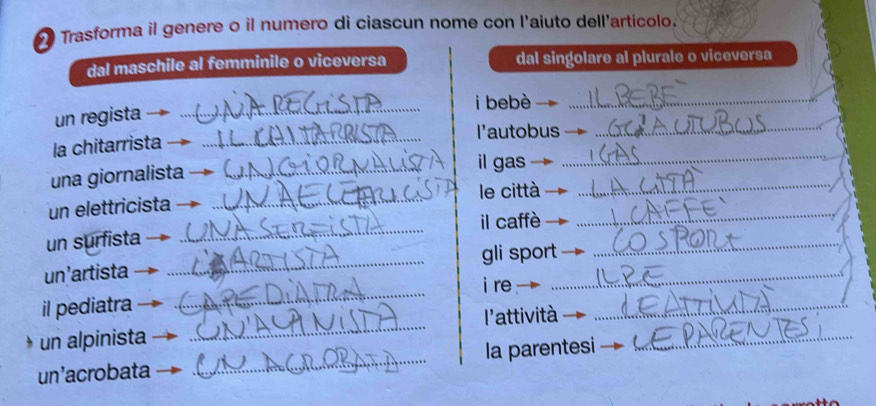 2 Trasforma il genere o il numero di ciascun nome con l'aiuto dell'articolo.
dal maschile al femminile o viceversa
un regista → UNA REGISTA
la chitarrista → IL CHITARRISTA
una giornalista → UN GIORNALISTA
un elettricista → UNA
un surfista → UNA SERFISTA
un'artista → ARTISTA
il pediatra → LA PEDIATRA
un alpinista → UN'ALPINISTA
un'acrobata → UN ACROBATA
dal singolare al plurale o viceversa
i bebè → IL BEBÈ
l'autobus → GLI AUTOBUS
il gas → I GAS
le città → LA CITTÀ
il caffè → I CAFFÈ
gli sport → LO SPORT
i re → IL RE
l'attività → LE ATTIVITÀ
la parentesi → LE PARENTESI